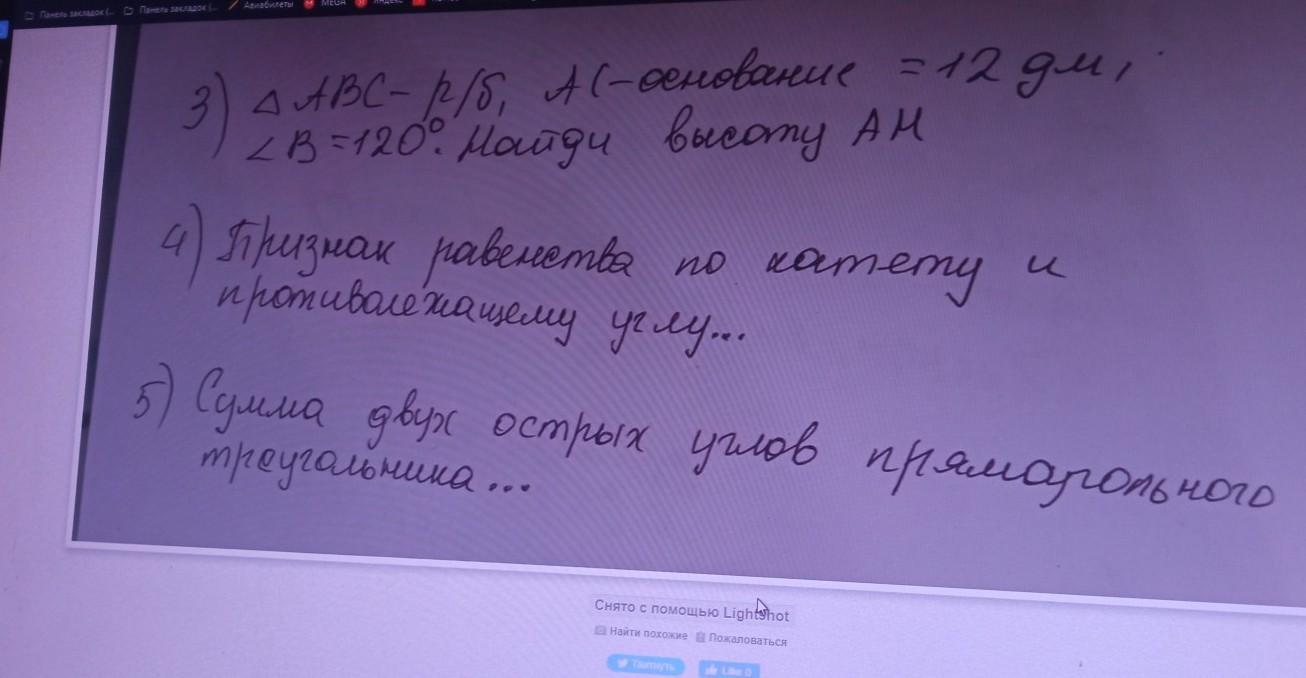 Панель закладок (...
Панель закладок (...
Авиабилеты
MEGA
3) △ ABC - р/б, AC - основание = 12 дм,
∠B = 120°. Найди высоту AH
4) Признак равенства по катету и
противолежащему углу...
5) Сумма двух острых углов прямоугольного
треугольника...
Снято с помощью Lightshot
Найти похожие Пожаловаться
Твитнуть Like 0